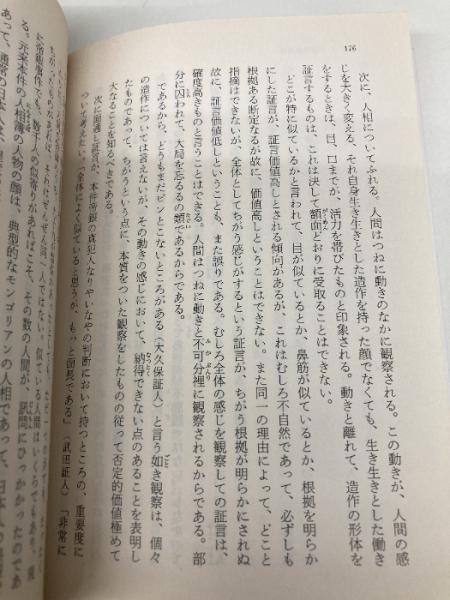 176
次に、人相についてふれる。人間はつねに動きのなかに観察される。この動きが、人間の感
じを大きく変える、それ自身生き生きとした造作を持った顔でなくても、生き生きとした働き
をするときは、目、口までが、活力を帯びたものと印象される。動きと離れて、造作の形体を
証言するものは、これは決して額面どおりに受取ることはできない。
どこが特に似ているかと言われて、目が似ているとか、鼻筋が似ているとか、根拠を明らか
にした証言が、証言価値高しとされる傾向があるが、これはむしろ不自然であって、必ずしも
根拠ある断定なるが故に、価値高しということはできない。また同一の理由によって、どこと
指摘はできないが、全体としてちがう感じがするという証言が、ちがう根拠が明らかにされぬ
故に、証言価値低しということも、また誤りである。むしろ全体の感じを観察しての証言は、
確度高きものと言うことはできる。人間はつねに動きと不可分裡に観察されるからである。部
分に囚われて、大局を忘るるの類であるからである。
であるから、どうもまだピンとこないところがある（大久保証人）と言う如き観察は、個々
の造作については言えないが、その動きの感じにおいて、納得できない点のあることを表明し
たものであって、ちがうという点に、本質をついた観察をしたものの従って否定的価値極めて
大なることを知るべきである。
次に面通し証言が、本件帝銀の真犯人なりやいなやの判断において持つところの重要度に
ついて考えたい。「全体によく似ていると思うが、もっと面長である」（武田証人）「非常に